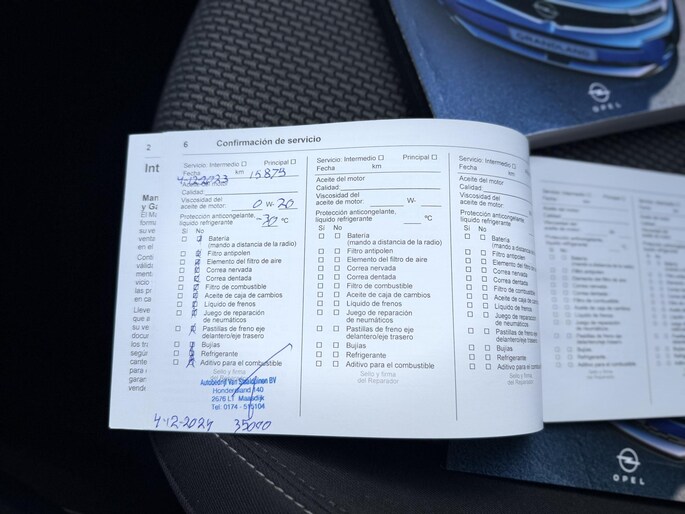 GRANDLAND
OPEL
2
Int
6 Confirmación de servicio
Servicio: Intermedio ☐ Principal ☐
Fecha km 15.875
4-12-2023
Aceite del motor
Calidad:
Viscosidad del
aceite de motor: 0 W- 20
Protección anticongelante,
líquido refrigerante -30 °C
Sí No
Batería
(mando a distancia de la radio)
Filtro antipolen
Elemento del filtro de aire
Correa nervada
Correa dentada
Filtro de combustible
Aceite de caja de cambios
Líquido de frenos
Juego de reparación
de neumáticos
Pastillas de freno eje
delantero/eje trasero
Bujías
Refrigerante
Aditivo para el combustible
Sello y firma
Autobedrijf Van
140
2676 LT Maasdijk
Tel: 0174 -
4-12-2024 35000
Servicio: Intermedio ☐ Principal ☐
Fecha km
Aceite del motor
Calidad:
Viscosidad del
aceite de motor: W-
Protección anticongelante,
líquido refrigerante °C
Sí No
☐ ☐ Batería
(mando a distancia de la radio)
☐ ☐ Filtro antipolen
☐ ☐ Elemento del filtro de aire
☐ ☐ Correa nervada
☐ ☐ Correa dentada
☐ ☐ Filtro de combustible
☐ ☐ Aceite de caja de cambios
☐ ☐ Líquido de frenos
☐ ☐ Juego de reparación
de neumáticos
☐ ☐ Pastillas de freno eje
delantero/eje trasero
☐ ☐ Bujías
☐ ☐ Refrigerante
☐ ☐ Aditivo para el combustible
Sello y firma
del Reparador
Servicio: Intermedio ☐
Fecha km
Aceite del motor
Calidad:
Viscosidad del
aceite de motor:
Protección anticongelante,
líquido refrigerante
Sí No
☐ ☐ Batería
(mando a distancia
☐ ☐ Filtro antipolen
☐ ☐ Elemento del filtro de
☐ ☐ Correa nervada
☐ ☐ Correa dentada
☐ ☐ Filtro de combustible
☐ ☐ Aceite de caja de
☐ ☐ Líquido de frenos
☐ ☐ Juego de reparación
de neumáticos
☐ ☐ Pastillas de freno eje
delantero/eje trasero
☐ ☐ Bujías
☐ ☐ Refrigerante
☐ ☐ Aditivo para el combustible
Sello y firma
del Reparador
OPEL